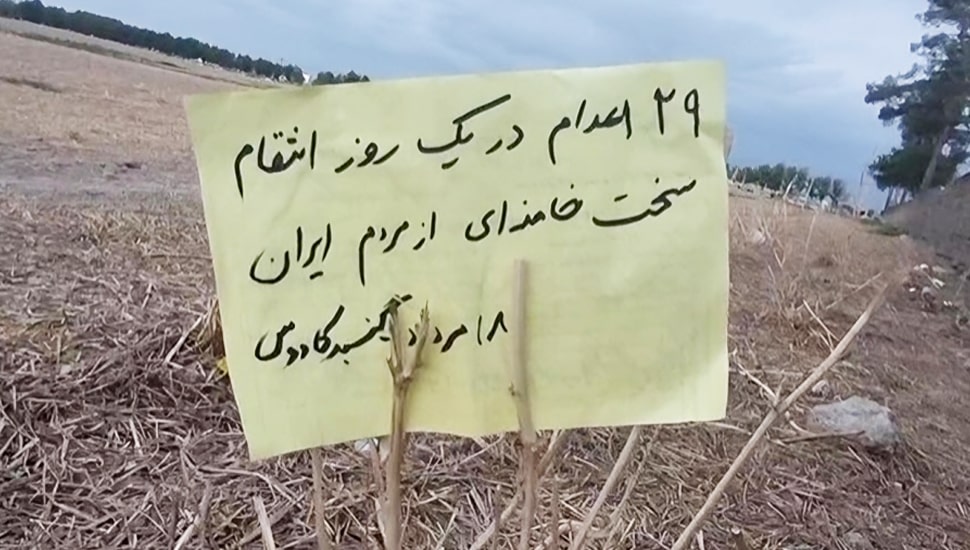 ۲۹ اعدام در یک روز انتقام
سخت خامنه‌ای از مردم ایران
۱۸ مرداد گنبدکاووس